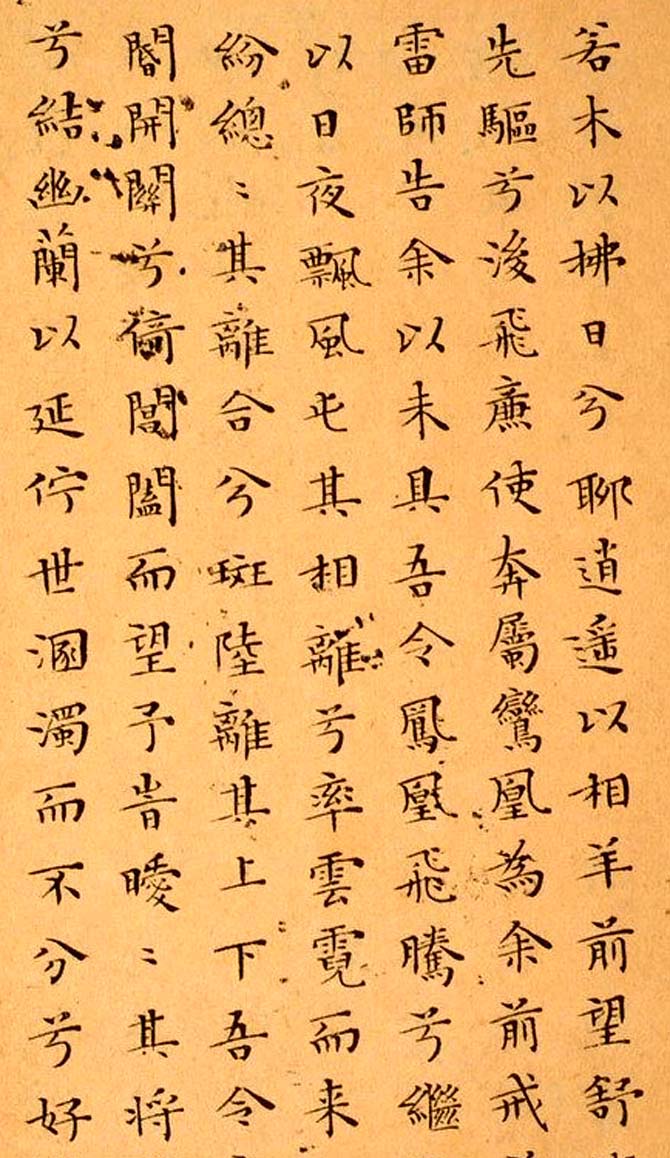 若木以拂日兮聊逍遥以相羊前望舒
先驅兮後飛廉使奔屬鸞凰為余前戒
雷師告余以未具吾令鳳凰飛騰兮繼
以日夜飄風屯其相離兮率雲霓而来
紛總〻其離合兮斑陸離其上下吾令
閽開關兮倚閶闔而望予旹曖〻其将
兮結幽蘭以延佇世溷濁而不分兮好